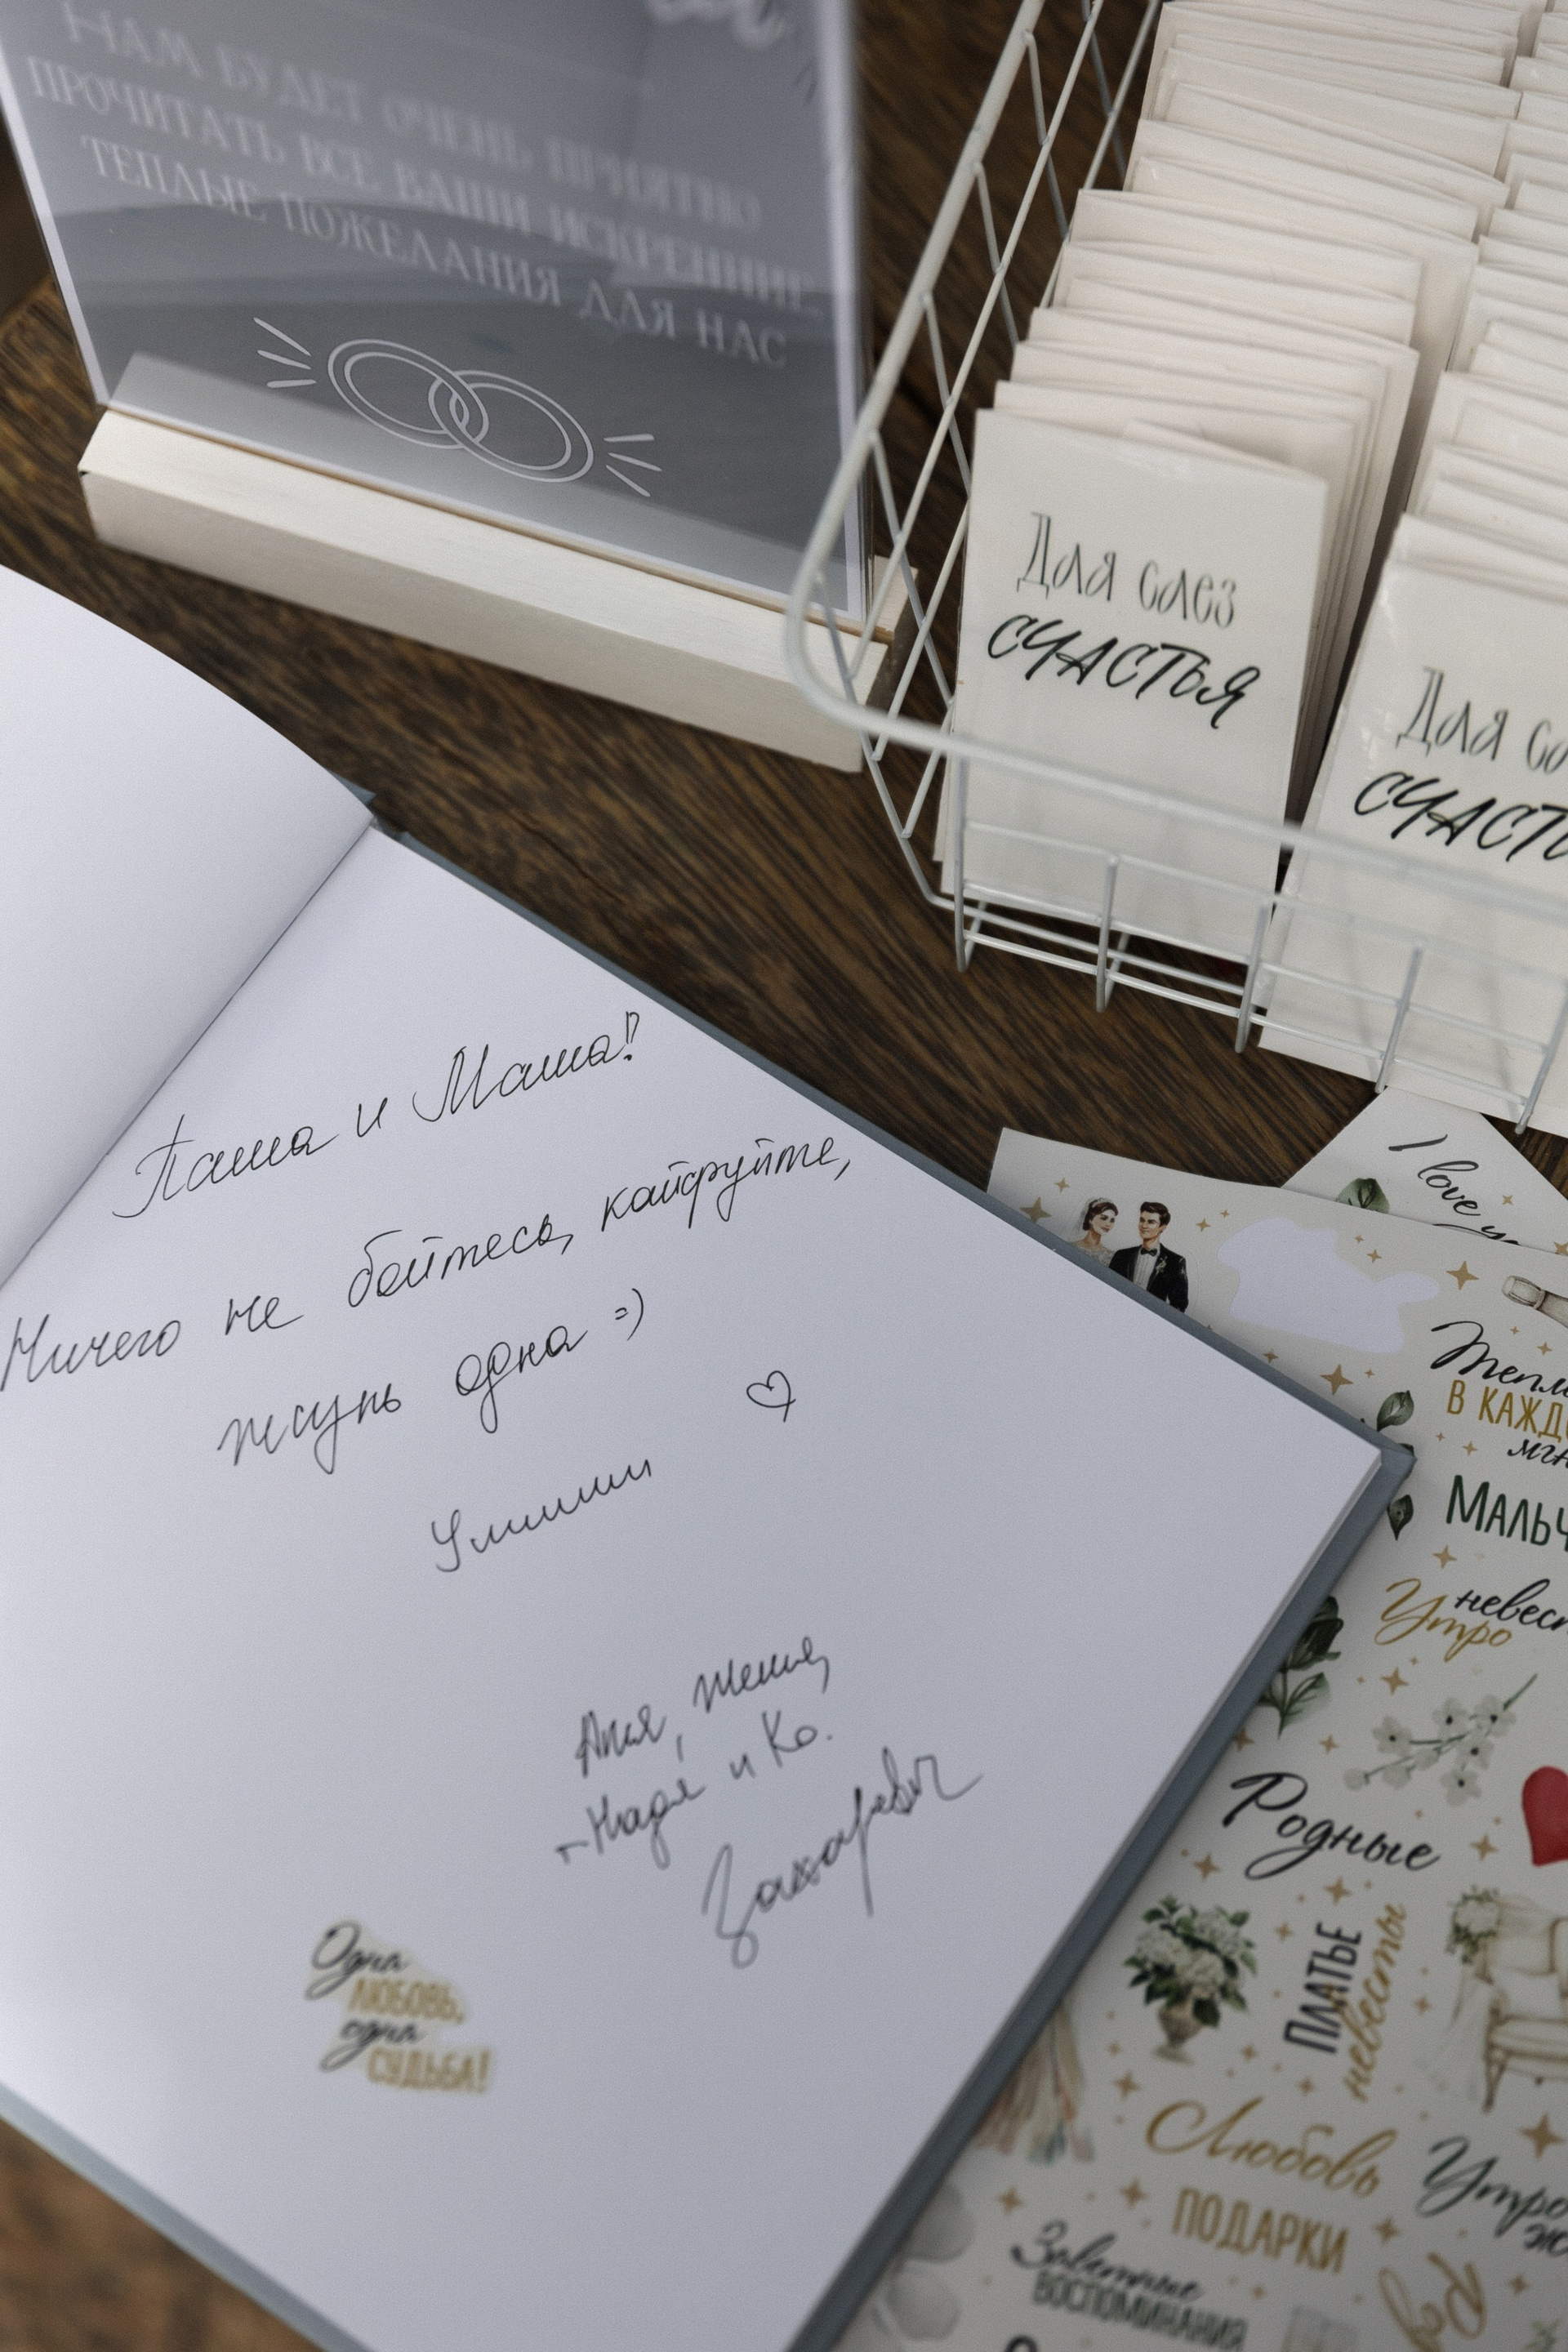 НАМ БУДЕТ ОЧЕНЬ ПРИЯТНО
ПРОЧИТАТЬ ВСЕ ВАШИ ИСКРЕННИЕ
ТЕПЛЫЕ ПОЖЕЛАНИЯ ДЛЯ НАС
Для слез
СЧАСТЬЯ
Для сл
СЧАСТЬ
Паша и Маша!
Ничего не бойтесь, кайфуйте,
жизнь одна =)
♡
Аня, Женя,
Надя и Ко.
Захаревич
Одна
ЛЮБОВЬ,
одна
СУДЬБА!
I love yo
Тепл
В КАЖДО
мгн
МАЛЬЧ
Утро
невест
Родные
ПЛАТЬЕ
невесты
Любовь
Утро
ПОДАРКИ
Заветные
ВОСПОМИНАНИЯ